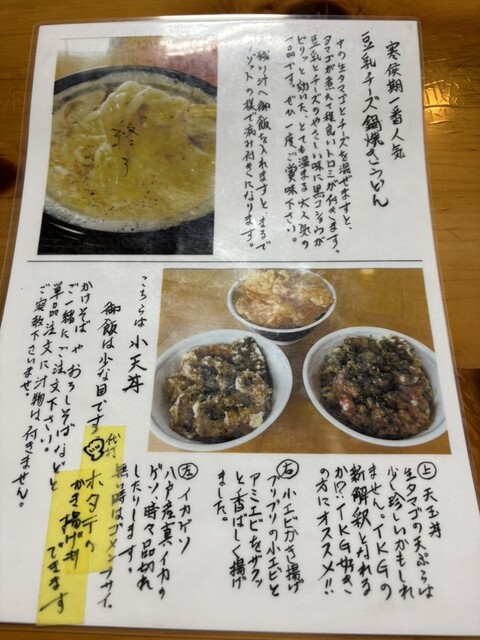 寒候期一番人気
豆乳チーズ鍋焼きうどん
中の生タマゴとチーズを混ぜますと、
タマゴが煮えて程良いトロミが付きます。
豆乳とチーズのやさしい味に黒コショウが
ピリッと効いた、とても温まる大人気の
一品です。ぜひ一度、ご賞味下さい。
残り汁へ御飯を入れますとまるで
リゾットの様で病み付きになります。
終了
こちらは小天丼
御飯は少な目です
かけそばやおろしそばなどと
ご一緒にご注文下さい。
単品注文に汁物は付きません。
ご容赦下さいませ。
上 天玉丼
生タマゴの天ぷらは
少し珍しいかもしれ
ません。TKGの
新解釈となれる
か!?TKG好き
の方にオススメ!!
右 小エビかき揚げ
プリプリの小エビと
アミエビをサクッ
と香ばしく揚げ
ました。
左 イカゲソ
八戸産真イカの
ゲソ、時々品切れ
したりします。
無い時はゴメンナサイ。
代打
ホタテの
かき揚げ丼
できます